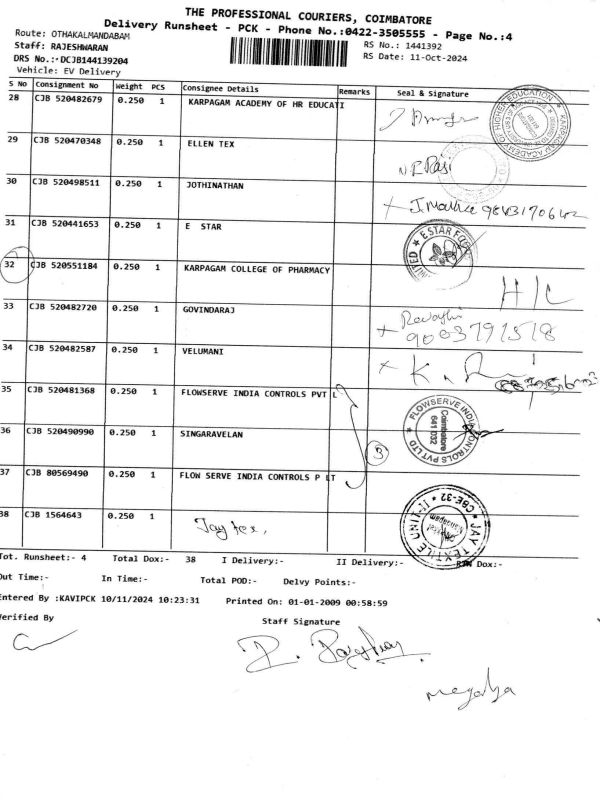 THE PROFESSIONAL COURIERS, COIMBATORE
Delivery Runsheet - PCK - Phone No.:0422-3505555 - Page No.:4
Route: OTHAKALMANDABAM
RS No.: 1441392
Staff: RAJESHWARAN
RS Date: 11-Oct-2024
DRS No.: DCJB144139204
Vehicle: EV Delivery
S No Consignment No Weight PCS Consignee Details Remarks Seal & Signature
28 CJB 520482679 0.250 1 KARPAGAM ACADEMY OF HR EDUCATI
29 CJB 520470348 0.250 1 ELLEN TEX
30 CJB 520498511 0.250 1 JOTHINATHAN
31 CJB 520441653 0.250 1 E STAR
ESTAR
32 CJB 520551184 0.250 1 KARPAGAM COLLEGE OF PHARMACY
33 CJB 520482720 0.250 1 GOVINDARAJ
Revathi
9003791518
34 CJB 520482587 0.250 1 VELUMANI
35 CJB 520481368 0.250 1 FLOWSERVE INDIA CONTROLS PVT L
FLOWSERVE INDIA CONTROLS PVT LTD
Coimbatore
641 032
36 CJB 520490990 0.250 1 SINGARAVELAN
3
37 CJB 80569490 0.250 1 FLOW SERVE INDIA CONTROLS P LT
38 CJB 1564643 0.250 1 Jay tex,
JAY TEXTILE UNIT-II CBE-32
Tot. Runsheet:- 4 Total Dox:- 38 I Delivery:- II Delivery:- RTN Dox:-
Out Time:- In Time:- Total POD:- Delvy Points:-
Entered By :KAVIPCK 10/11/2024 10:23:31 Printed On: 01-01-2009 00:58:59
Verified By Staff Signature